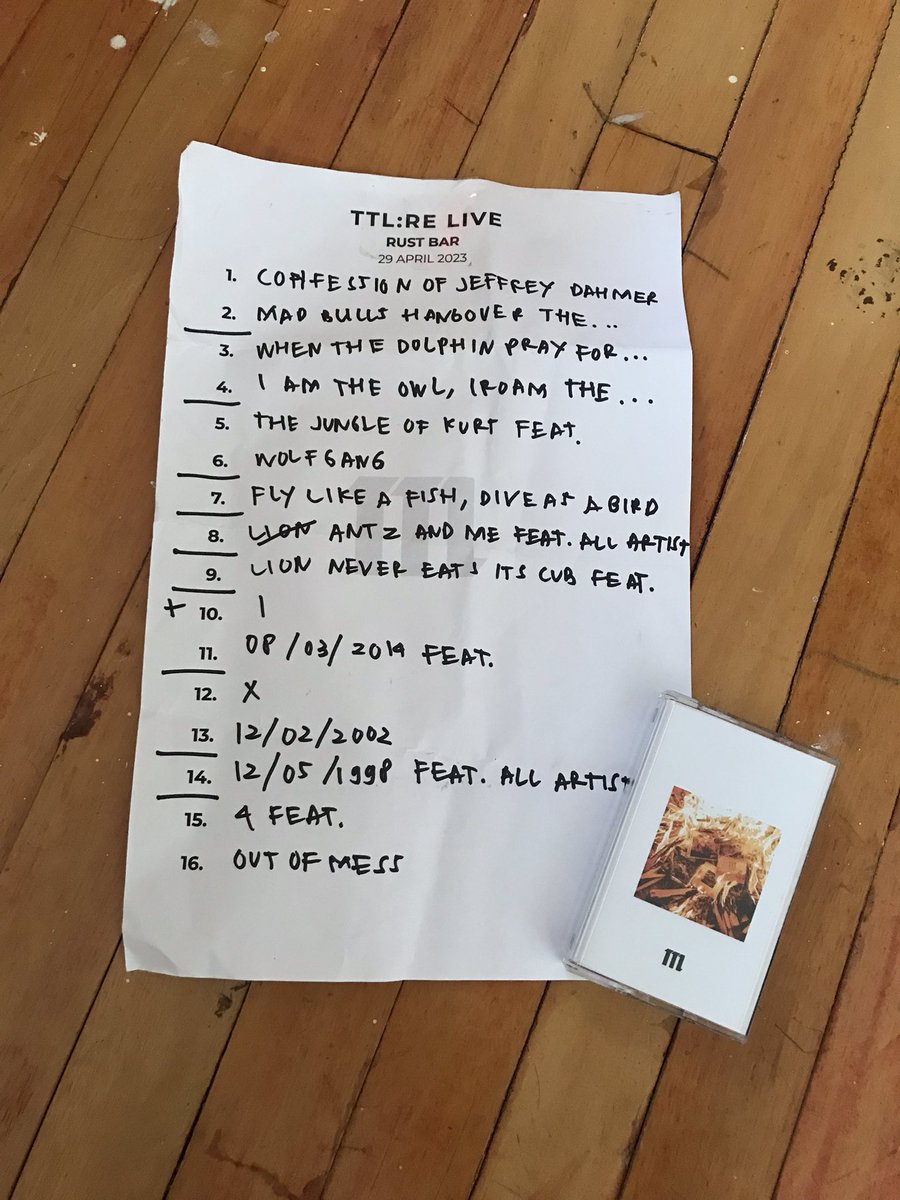 TTL:RE LIVE
RUST BAR
29 APRIL 2023
1. CONFESSION OF JEFFREY DAHMER
2. MAD BULLS HANGOVER THE...
3. WHEN THE DOLPHIN PRAY FOR...
4. I AM THE OWL, I ROAM THE...
5. THE JUNGLE OF KURT FEAT.
6. WOLFGANG
7. FLY LIKE A FISH, DIVE AS A BIRD
8. LION ANTZ AND ME FEAT. ALL ARTIST
9. LION NEVER EATS ITS CUB FEAT.
+ 10. 1
11. 08/03/2014 FEAT.
12. X
13. 12/02/2002
14. 12/05/1998 FEAT. ALL ARTIST
15. 4 FEAT.
16. OUT OF MESS
m